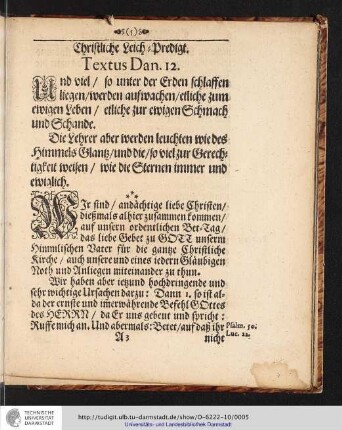 (5)
Christliche Leich-Predigt.
Textus Dan. 12.
Und viel / so unter der Erden schlaffen
liegen / werden aufwachen / etliche zum
ewigen Leben / etliche zur ewigen Schmach
und Schande.
Die Lehrer aber werden leuchten wie des
Himmels Glantz / und die / so viel zur Gerech-
tigkeit weisen / wie die Sternen immer und
ewiglich.
***
WIr sind / andächtige liebe Christen /
dießmals alhier zusammen kommen /
auf unsern ordentlichen Bet-Tag /
das liebe Gebet zu GOTT unserm
Himmlischen Vater für die gantze Christliche
Kirche / auch unsere und eines iedern Gläubigen
Noth und Anliegen miteinander zu thun.
Wir haben aber ietzund hochdringende und
sehr wichtige Ursachen darzu: Dann 1. so ist al-
da der ernste und imerwährende Befehl GOttes
des HERRN / da Er uns gebeut und spricht:
Ruffe mich an. Und abermals: Betet / auf daß ihr
Psalm. 50.
Luc. 22.
A3 nicht
TECHNISCHE
UNIVERSITÄT
DARMSTADT
http://tudigit.ulb.tu-darmstadt.de/show/O-6222-10/0005
Universitäts- und Landesbibliothek Darmstadt